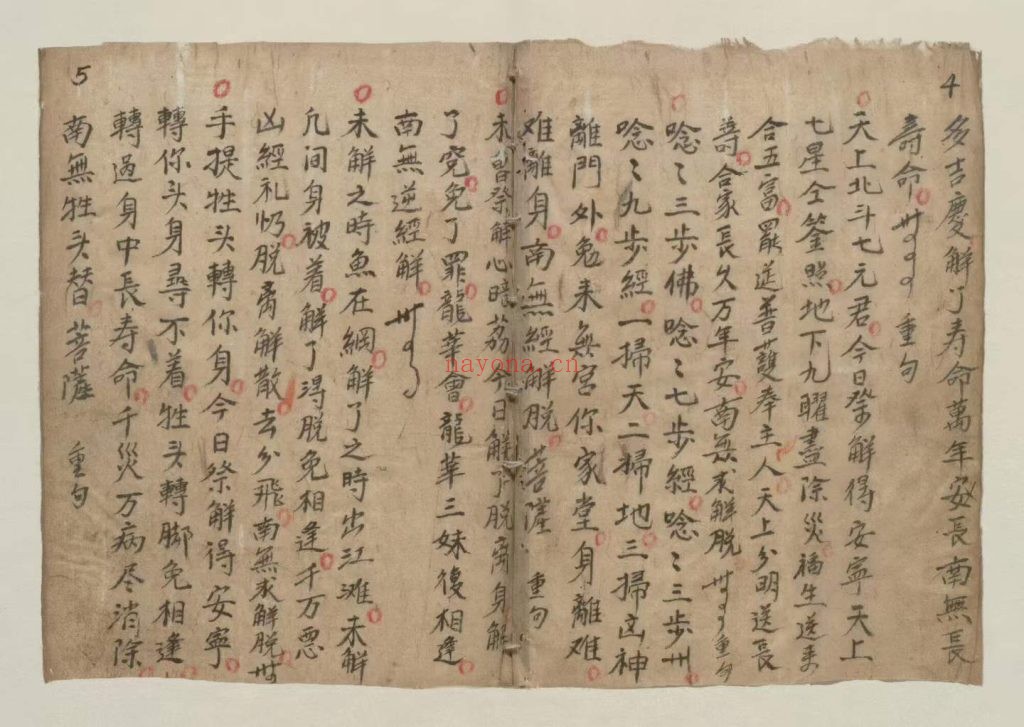 4
多吉慶解了寿命萬年安長南無長
壽命 重句
天上北斗七元君今日祭解得安寜天上
七星全 照地下九曜盡除災福生送来
合五富罷送普護奉主人天上分明送長
尋合家長久万年安南無求解脱 重句
唸〻三步佛唸〻七步經唸〻三步州
唸〻九步經一掃天二掃地三掃凶神
離門外免来無害你家堂身離难
难離身南無經解脱菩薩 重句
未曾祭解心暗 今日解了脱离身解
了冤免了罪龍華會龍華三妹復相逢
南無逆經解
未解之時魚在網解了之時出江滩未解
凡间身被着解了淂脱免相逢千万惡
凶經礼 脱离解散去分飛南無求解脱
手提牲头轉你身今日祭解得安寧
轉你头身尋不着牲头轉脚免相逢
轉過身中長寿命千災万病尽消除
南無牲头替菩薩 重句
5
nayona.cn